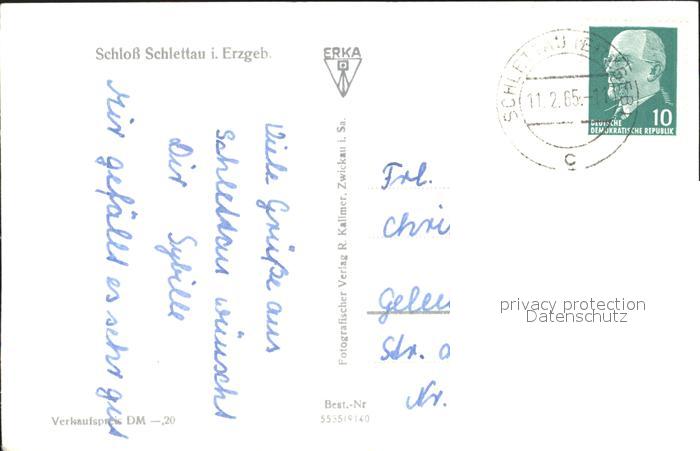 Schloß Schlettau i. Erzgeb.
Viele Grüße aus
Schlettau wünscht
Dir Sybille
Mir gefällt es sehr gut
Verkaufspreis DM —,20
ERKA
Fotografischer Verlag R. Kallmer, Zwickau i. Sa.
Best.-Nr
5535/9140
SCHLETTAU (ERZGEB)
11.2.65.-1
c
10
DEUTSCHE
DEMOKRATISCHE REPUBLIK
Frl.
Chri
Gelen
Str. d
Nr.
privacy protection
Datenschutz